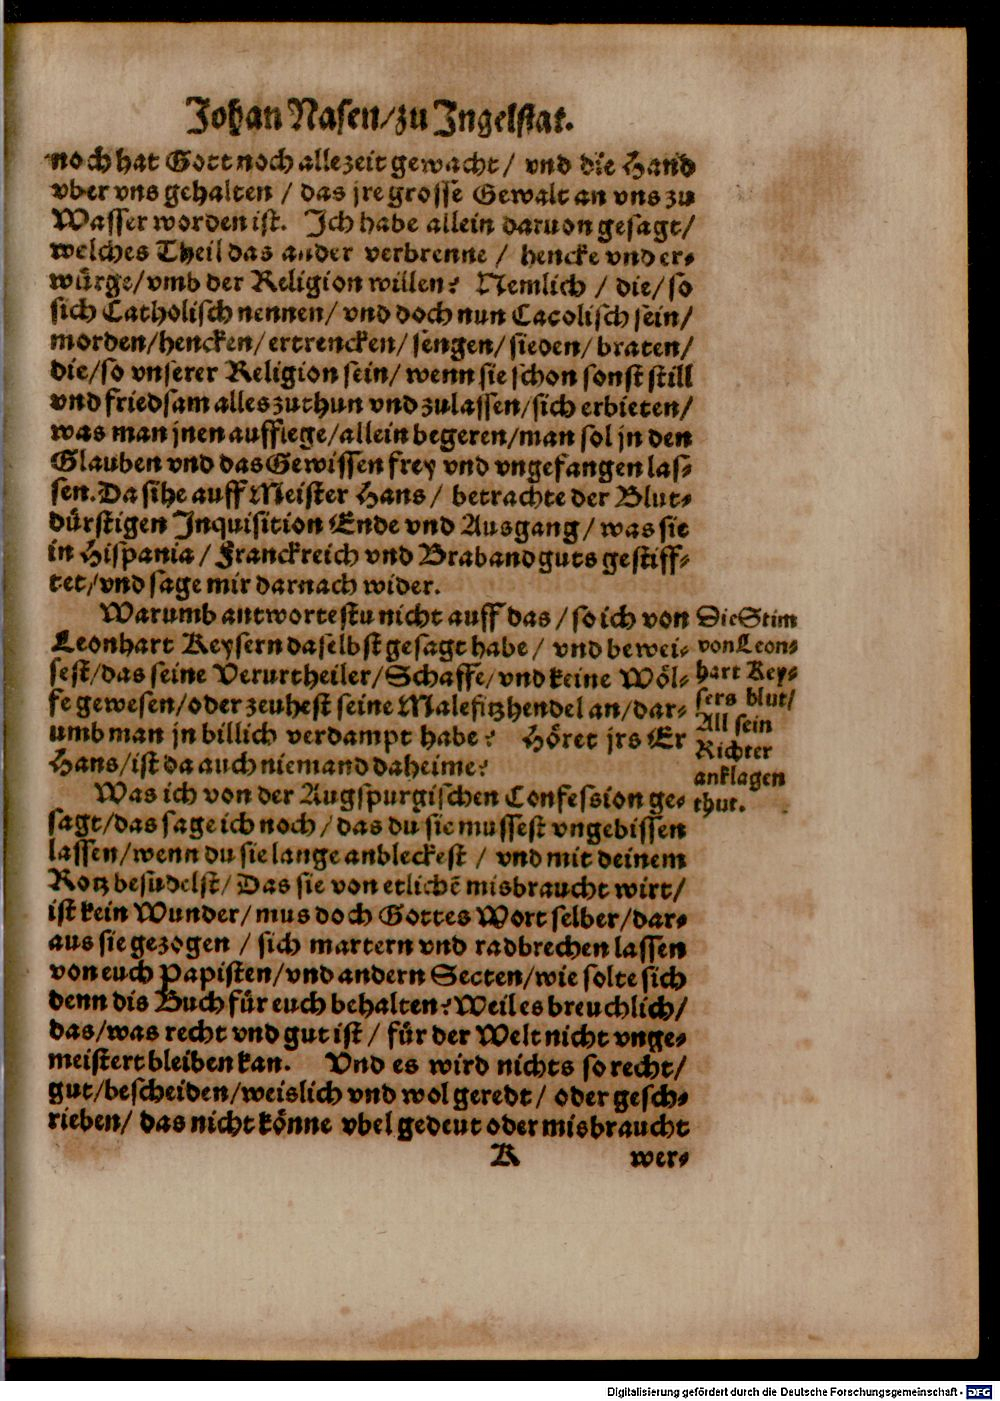 Johan Nasen/zu Ingelstat.
noch hat Gott noch allezeit gewacht/ vnd die Hand
vber vns gehalten / das jre grosse Gewalt an vns zu
Wasser worden ist. Ich habe allein daruon gesagt/
welches Theil das ander verbrenne / hencke vnd er-
würge/vmb der Religion willen? Nemlich / die/so
sich Catholisch nennen/ vnd doch nun Cacolisch sein/
morden/hencken/ ertrencken/ sengen/ sieden/ braten/
die/so vnserer Religion sein/ wenn sie schon sonst still
vnd friedsam alles zuthun vnd zulassen/sich erbieten/
was man jnen aufflege/allein begeren/man sol jn den
Glauben vnd das Gewissen frey vnd vngefangen las-
sen. Da sihe auff Meister Hans/ betrachte der Blut-
dürstigen Inquisition Ende vnd Ausgang/ was sie
in Hispania/ Franckreich vnd Braband guts gestiff-
tet/vnd sage mir darnach wider.
Warumb antwortestu nicht auff das/ so ich von
Leonhart Keysern daselbst gesagt habe/ vnd bewei-
sest/das seine Verurtheiler/Schaffe/vnd keine Wöl-
fe gewesen/oder zeuhest seine Malefitzhendel an/dar-
umb man jn billich verdampt habe? Höret jrs Er
Hans/ist da auch niemand daheime?
Die Stim
von Leon-
hart Key-
sers blut/
All sein
Richter
anklagen
thut.
Was ich von der Augspurgischen Confession ge-
sagt/das sage ich noch/ das du sie mussest vngebissen
lassen/wenn du sie lange anbleckest / vnd mit deinem
Rotz besudelst/ Das sie von etlichẽ misbraucht wirt/
ist kein Wunder/mus doch Gottes Wort selber/dar-
aus sie gezogen / sich martern vnd radbrechen lassen
von euch Papisten/vnd andern Secten/wie solte sich
denn dis Buch für euch behalten? Weil es breuchlich/
das/was recht vnd gut ist/ für der Welt nicht vnge-
meistert bleiben kan. Vnd es wird nichts so recht/
gut/bescheiden/weislich vnd wol geredt/ oder gesch-
rieben/ das nicht könne vbel gedeut oder misbraucht
K wer-
Digitalisierung gefördert durch die Deutsche Forschungsgemeinschaft - DFG